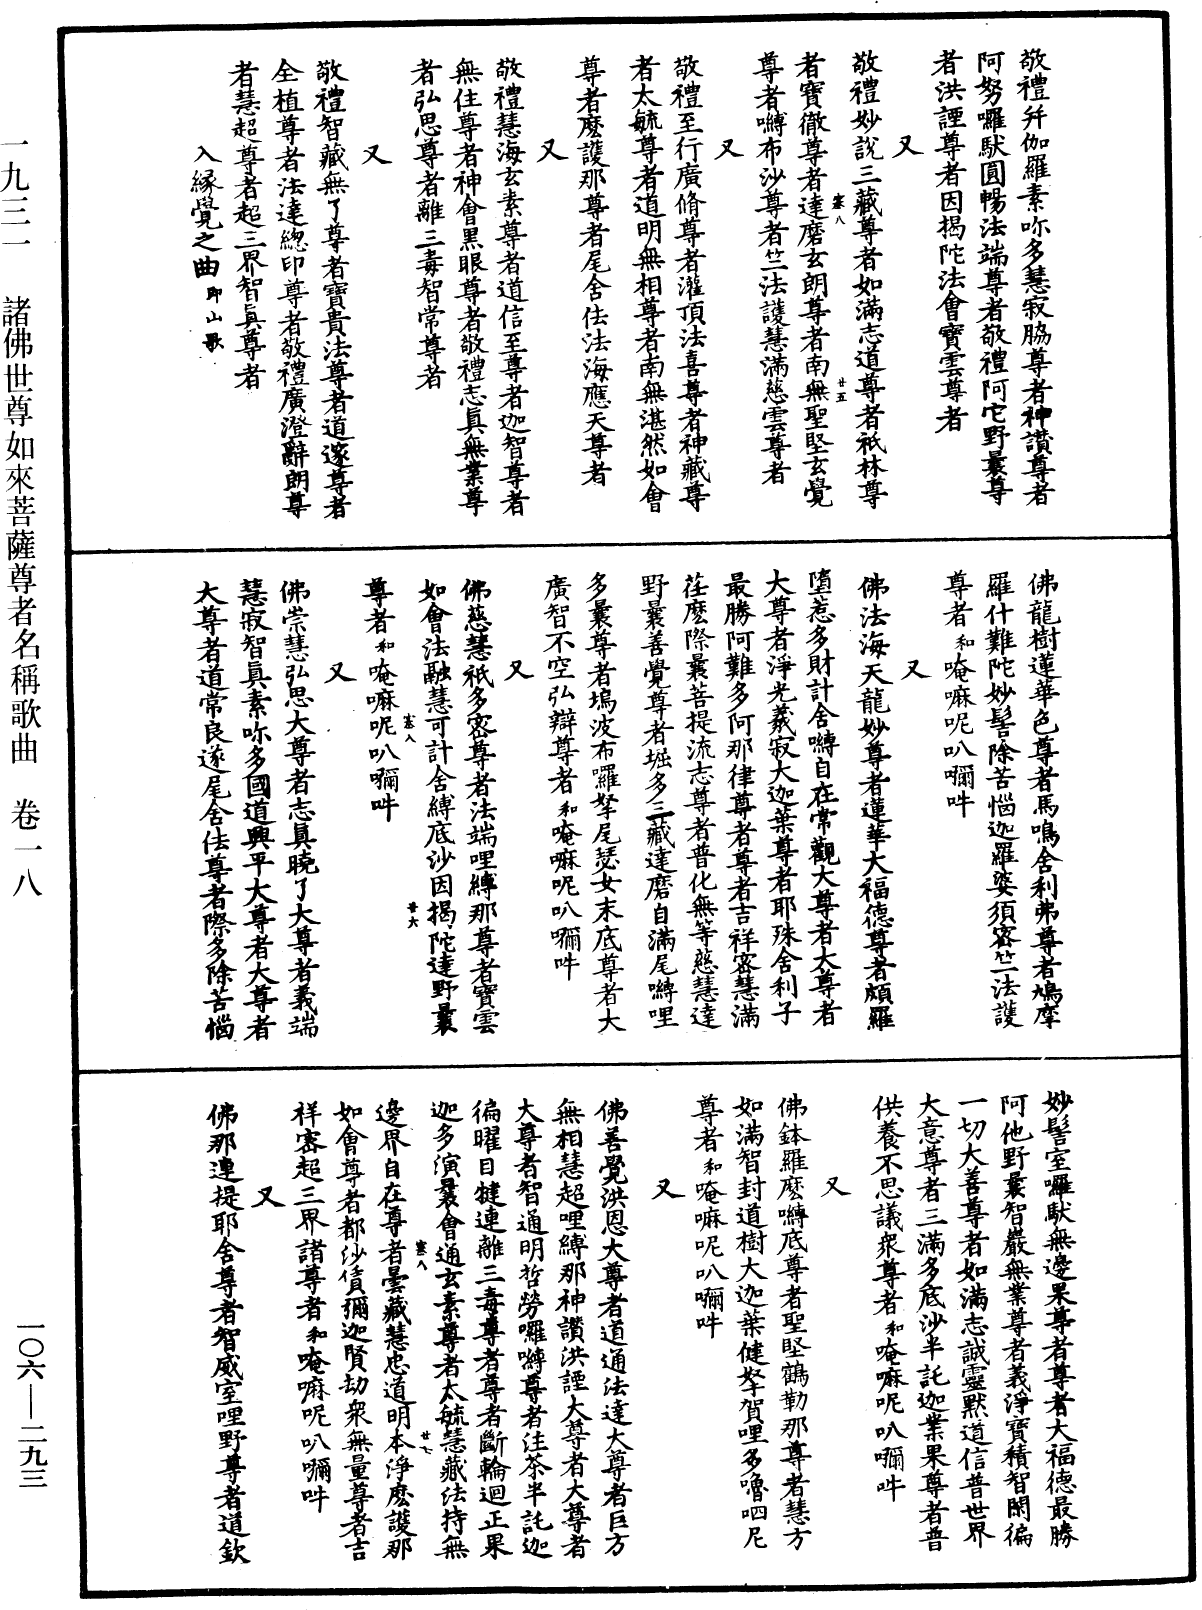 敬禮弁伽羅素㖿多慧寂脇尊者神讚尊者
阿努囉馱圓暢法端尊者敬禮阿它野曩尊
者洪諲尊者因揭陀法會寶雲尊者
又
敬禮妙說三藏尊者如滿志道尊者祇林尊
者寶徹尊者達磨玄朗尊者南無聖堅玄覺
尊者嚩布沙尊者竺法護慧滿慈雲尊者
又
敬禮至行廣脩尊者灌頂法喜尊者神藏尊
者太毓尊者道明無相尊者南無湛然如會
尊者麽護那尊者尾舍佉法海應天尊者
又
敬禮慧海玄素尊者道信至尊者迦智尊者
無住尊者神會黑眼尊者敬禮志真無業尊
者弘思尊者離三毒智常尊者
又
敬禮智藏無了尊者寶貴法尊者道邃尊者
全植尊者法達總印尊者敬禮廣澄辭朗尊
者慧超尊者超三界智真尊者
入緣覺之曲 即山歌
塞八
廿五
佛龍樹蓮華色尊者馬鳴舍利弗尊者鳩摩
羅什難陀妙髻除苦惱迦羅婆須密竺法護
尊者 和唵嘛呢叭𡃎吽
又
佛法海天龍妙尊者蓮華大福德尊者頗羅
墮惹多財計舍嚩自在常觀大尊者大尊者
大尊者淨光義寂大迦葉尊者耶殊舍利子
最勝阿難多阿那律尊者尊者吉祥密慧滿
荏麽際曩菩提流志尊者普化無等慈慧達
野曩善覺尊者堀多三藏達磨自滿尾嚩哩
多曩尊者塢波布囉拏尾瑟女末底尊者大
廣智不空弘辯尊者 和唵嘛呢叭𡃎吽
又
佛慈慧祇多密尊者法端哩縛那尊者寶雲
如會法融慧可計舍縛底沙因揭陀達野曩
尊者 和唵嘛呢叭𡃎吽
又
佛崇慧弘思大尊者志真曉了大尊者義端
慧寂智真素㖿多國道興平大尊者大尊者
大尊者道常良遂尾舍佉尊者際多除苦惱
塞八
廿六
妙髻室囉馱無邊果尊者尊者大福德最勝
阿他野曩智嚴無業尊者義淨寶積智閑徧
一切大善尊者如滿志誠靈默道信普世界
大意尊者三滿多底沙半託迦業果尊者普
供養不思議衆尊者 和唵嘛呢叭𡃎吽
又
佛鉢羅麽嚩底尊者聖堅鶴勒那尊者慧方
如滿智封道樹大迦葉健拏賀哩多嚕呬尼
尊者 和唵嘛呢叭𡃎吽
又
佛善覺洪恩大尊者道通法達大尊者巨方
無相慧超哩縛那神讚洪諲大尊者大尊者
大尊者智通明哲勞囉嚩尊者注荼半託迦
徧曜目犍連離三毒尊者尊者斷輪迴正果
迦多演曩會通玄素尊者太毓慧藏法持無
邊界自在尊者曇藏慧忠道明本淨麽護那
如會尊者都沙債彌迦賢劫衆無量尊者吉
祥密超三界諸尊者 和唵嘛呢叭𡃎吽
又
佛那連提耶舍尊者智威室哩野尊者道欽
塞八
廿七
一九三一 諸佛世尊如來菩薩尊者名稱歌曲 卷一八
一〇六—二九三